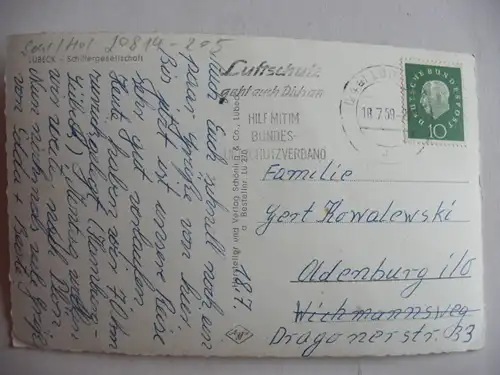 Seit/Hol 20814-205
LÜBECK - Schiffergesellschaft
Luftschutz
geht auch Dich an
HILF MIT IM
BUNDES-
LUFTSCHUTZVERBAND
18.7.59
DEUTSCHE BUNDESPOST
10
Familie
Gert Kowalewski
Oldenburg i/O
Wichmannsweg
Dragonerstr. 33
Hersteller und Verlag Schöning & Co., Lübeck
Bestellnr. Lü
18.7.
Euch schnell noch ein
paar Grüße von hier.
Bis jetzt ist unsere Reise
sehr gut verlaufen.
Heute haben wir 70 km
zurückgelegt (Hamburg-
Lübeck). Montag wollen
wir nach
Nun nochmals viele Grüße
von